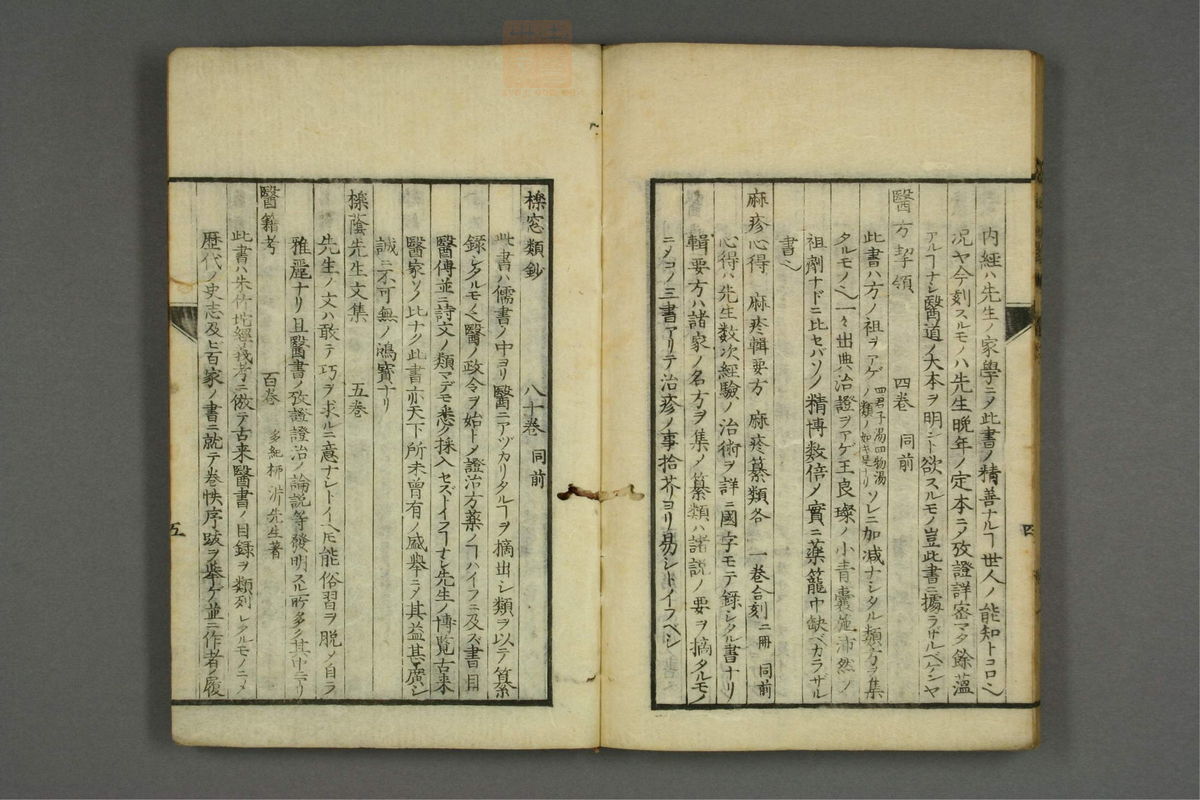 内經ハ先生ノ家學ニ〆此書ノ精善ナルヿ世人ノ能知トコロ〱
況ヤ今刻スルモノハ先生晩年ノ定本ニ〆攷證詳密マタ餘薀
アルヿナシ醫道ノ大本ヲ明ント欲スルモノ豈此書ニ據ラザルベケンヤ
醫方挈領 四卷 同前
此書ハ方ノ祖ヲアゲ四君子湯四物湯ノ類ノ如キ是ナリソレニ加减ナシタル類方ヲ集
タルモノ〱一々出典治證ヲアゲ王良璨ノ小青囊施沛然ノ
祖劑ナドニ比セバソノ精博数倍ノ實ニ藥籠中缺ベカラザル
書〱
麻疹心得 麻疹輯要方 麻疹纂類各 一卷合刻二冊 同前
心得ハ先生数次經驗ノ治術ヲ詳ニ國字モテ録シタル書ナリ
輯要方ハ諸家ノ名方ヲ集〆纂類ハ諸説ノ要ヲ摘タルモノ
ニ〆コノ三書アリテ治疹ノ事拾芥ヨリ易シトイフベシ
四
櫟窓類鈔 八十卷 同前
此書ハ儒書ノ中ヨリ醫ニアヅカリタルヿヲ摘出シ類ヲ以テ纂
録シタルモノ〱醫ノ政令ヲ始ト〆證治方藥ノヿハイフニ及ズ書目
醫傳並ニ詩文ノ類マデモ悉ク採入セズトイフヿナシ先生ノ博覧古来
醫家ソノ比ナク此書亦天下所未曾有ノ盛擧ニ〆其益甚廣シ
誠ニ不可無ノ鴻寶ナリ
櫟蔭先生文集 五卷
先生ノ文ハ敢テ巧ヲ求ルニ意ナシトイヘ𪜈能俗習ヲ脱〆自ラ
雅麗ナリ且醫書ノ攷證證治ノ論説等發明スル所多ク其中ニアリ
醫籍考 百卷 多紀柳沜先生著
此書ハ朱竹垞經義考ニ倣テ古来醫書ノ目録ヲ類列シタルモノニ〆
歴代ノ史志及ビ百家ノ書ニ就テ卷帙序跋ヲ擧ゲ並ニ作者ノ履
五